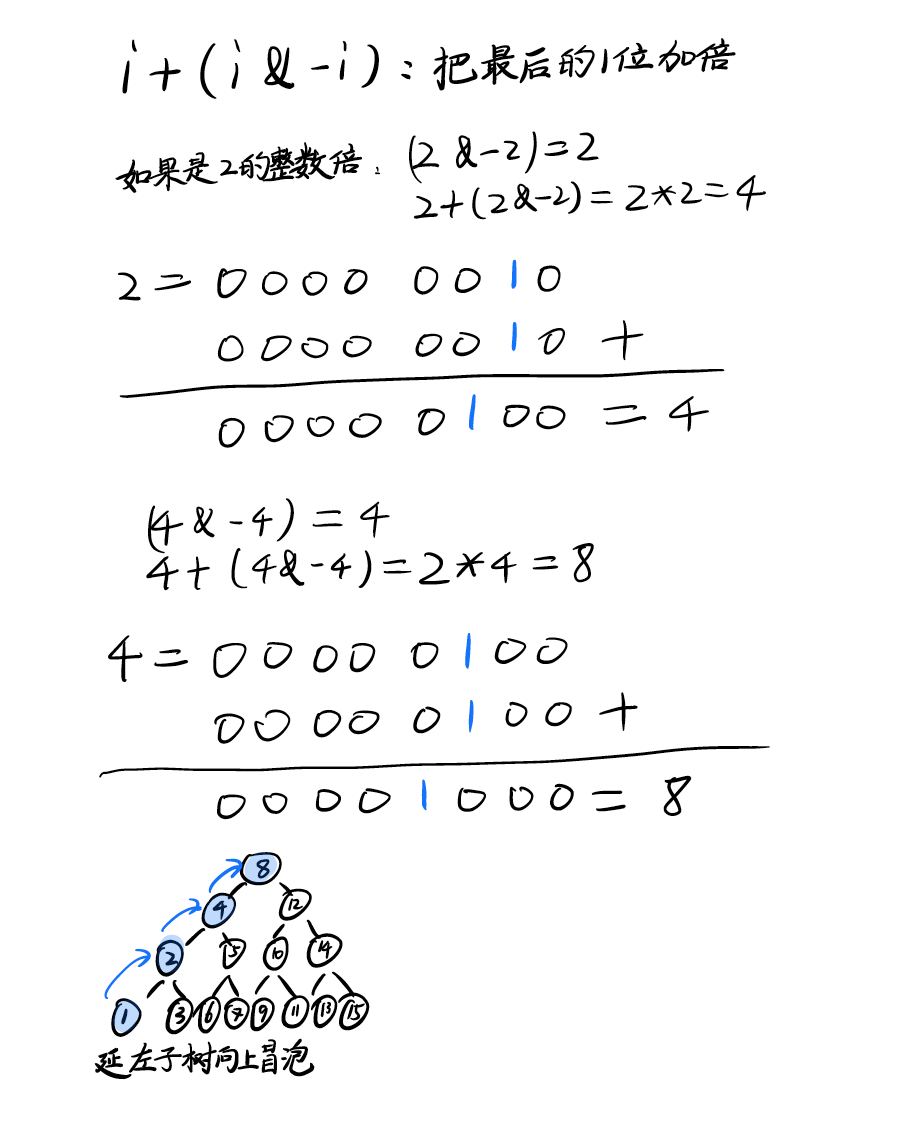 i+(i&-i):把最后的1位加倍
如果是2的整数倍. (2&-2)=2
2+(2&-2)=2*2=4
2=0000 0010
0000 0010 +
0000 0100 =4
(4&-4)=4
4+(4&-4)=2*4=8
4=0000 0100
0000 0100 +
0000 1000=8
8
4 12
2 15 10 14
1 3 6 7 9 11 13 15
延左子树向上冒泡